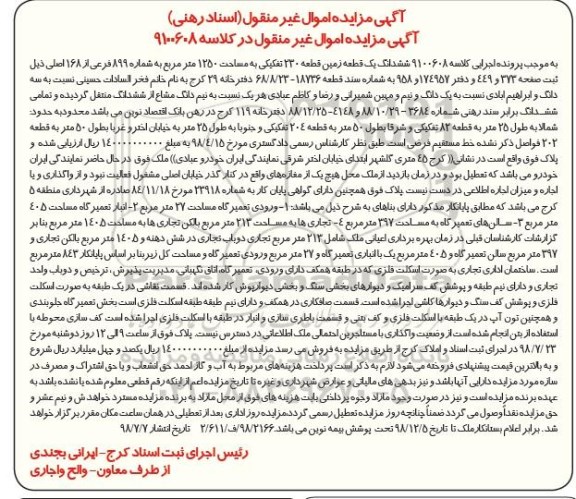 آگهی مزایده اموال غیر منقول (اسناد رهنی)
آگهی مزایده اموال غیر منقول در کلاسه ۹۱۰۰۶۰۸
به موجب پرونده اجرایی کلاسه ۹۱۰۰۶۰۸ ششدانگ یک قطعه زمین قطعه ۲۳۰ تفکیکی به مساحت ۱۲۵۰ متر مربع به شماره ۸۹۹ فرعی از ۱۶۸ اصلی ذیل
ثبت صفحه ۳۷۳ و ۴۴۹ و دفتر ۱۷۴۹۵۷ و ۹۵۸ به شماره سند قطعه ۱۸۷۳۶-۶۸/۸/۲۳ دفترخانه ۲۹ کرج به نام خانم فخر السادات حسینی نسبت به سه
دانگ و ابراهیم آبادی نسبت به یک دانگ و نیم و مهین شمیرانی و رضا و کاظم عبادی هر یک نسبت به نیم دانگ مشاع از ششدانگ منتقل گردیده و تمامی
ششدانگ برابر سند رهنی شماره ۳۶۸۴-۸۸/۱۰/۲۹ و ۴۱۴۸-۸۸/۱۲/۲۵ دفترخانه ۱۱۹ کرج در رهن بانک اقتصاد نوین می باشد محدوده حدود:
شمالا به طول ۲۵ متر به قطعه ۸۲ تفکیکی و شرقا بطول ۵۰ متر به قطعه ۲۰۴ تفکیکی و جنوبا به طول ۲۵ متر به خیابان اختر و غربا بطول ۵۰ متر به قطعه
۲۰۲ فواصل ذکر نشده خط مستقیم فرضی است. طبق نظر کارشناس رسمی دادگستری مورخ ۹۸/۴/۱۵ به مبلغ ۱۴۰۰۰۰۰۰۰۰۰۰ ریال ارزیابی شده و
پلاک فوق واقع است در نشانی(( کرج ۴۵ متری گلشهر ابتدای خیابان اختر شرقی نمایندگی ایران خودرو عبادی)) ملک فوق در حال حاضر نمایندگی ایران
خودرو می باشد که تعطیل بود و در زمان بازدید از ملک محل هیچ یک از مغازه‌های واقع در کنار گذر خیابان اصلی مشغول فعالیت نبود و از واگذاری و یا
اجاره و میزان اجاره اطلاعی در دست نیست. پلاک فوق همچنین دارای گواهی پایان کار به شماره ۲۳۹۱۸ مورخ ۸۴/۱۱/۱۸ صادره از شهرداری منطقه ۵
کرج می باشد که مطابق پایانکار مذکور دارای بناهای به شرح ذیل می باشد: ۱-ورودی تعمیر گاه مساحت ۲۷ متر مربع ۲-انبار تعمیر گاه مساحت ۴۰۵
متر مربع ۳-سالن‌های تعمیر گاه به مساحت ۳۹۷ مترمربع ۴-تجاری ها به مساحت ۲۱۳ متر مربع بالکن تجاری ها به مساحت ۱۴۰۵ متر مربع بنا بر
گزارشات کارشناس قبلی در زمان بهره برداری اعیانی ملک شامل ۲۱۳ متر مربع تجاری دوباب تجاری در شش دهنه و ۱۴۰۵ متر مربع بالکن تجاری و
۳۹۷ متر مربع سالن تعمیر گاه و ۴۰۵ متر مربع یک باانباری تعمیر گاه و ۲۷ متر مربع ورودی تعمیر گاه و مساحت کل زیربنا بر اساس پایانکار ۸۴۳ مترمربع
است. ساختمان اداری تجاری به صورت اسکلت فلزی که در طبقه همکف دارای ورودی، تعمیر گاه، اتاق نگهبانی مدیریت پذیرش، ترخیص و دوباب واحد
تجاری و دارای نیم طبقه و پوشش کف سرامیک و دیوارهای بخشی سنگ و بخشی دیوارپوش کار شده اند. قسمت نقاشی در یک طبقه به صورت اسکلت
فلزی و پوشش کف سنگ و دیوارها کاشی اجرا شده است. قسمت صافکاری در همکف و دارای نیم طبقه اسکلت فلزی است بخش تعمیر گاه جلوبندی
و همچنین تون آپ در یک طبقه با اسکلت فلزی و کف بتنی و قسمت باطری سازی و انبار در طبقه با اسکلت فلزی اجرا شده است کف سازی محوطه با
استفاده از بتن انجام شده است از وضعیت واگذاری یا مستاجرین احتمالی ملک اطلاعاتی در دسترس نیست. پلاک فوق از ساعت ۹ الی ۱۲ روز دوشنبه مورخ
۹۸/۷/۲۳ در اجرای ثبت اسناد و املاک کرج از طریق مزایده به فروش می رسد مزایده از مبلغ ۱۴۰۰۰۰۰۰۰۰۰۰ ریال یکصد و چهل میلیارد ریال شروع
و به بالاترین قیمت پیشنهادی فروخته می‌شود لازم به ذکر است پرداخت هزینه‌های مربوط به آب و گاز اعم از حق انشعاب و یا حق اشتراک و مصرف در
سازه مورد مزایده دارایی آنها باشد و نیز بدهی های مالیاتی و عوارض شهرداری و غیره تا تاریخ مزایده اعم از اینکه رقم قطعی معلوم شده یا نشده باشد به
عهده برنده مزایده است و نیز در صورت وجود مازاد وجوه پرداختی بابت هزینه های فوق از محل مازاد به برنده مزایده مسترد خواهد ش و نیم عشر و
حق مزایده نقداً وصول می گردد ضمناً چنانچه روز مزایده تعطیل رسمی گردد، مزایده روز اداری بعد از تعطیلی در همان ساعت مکان مقرر بر گزار خواهد
شد. برابر اعلام بستانکار ملک تا تاریخ ۹۸/۱۲/۵ تحت پوشش بیمه نوین می باشد. ۹۸/۲۱۶۶/ف ۲/۶۱۱ تاریخ انتشار ۹۸/۷/۷
رئیس اجرای ثبت اسناد کرج- ایرانی بجندی
از طرف معاون- والح واجاری